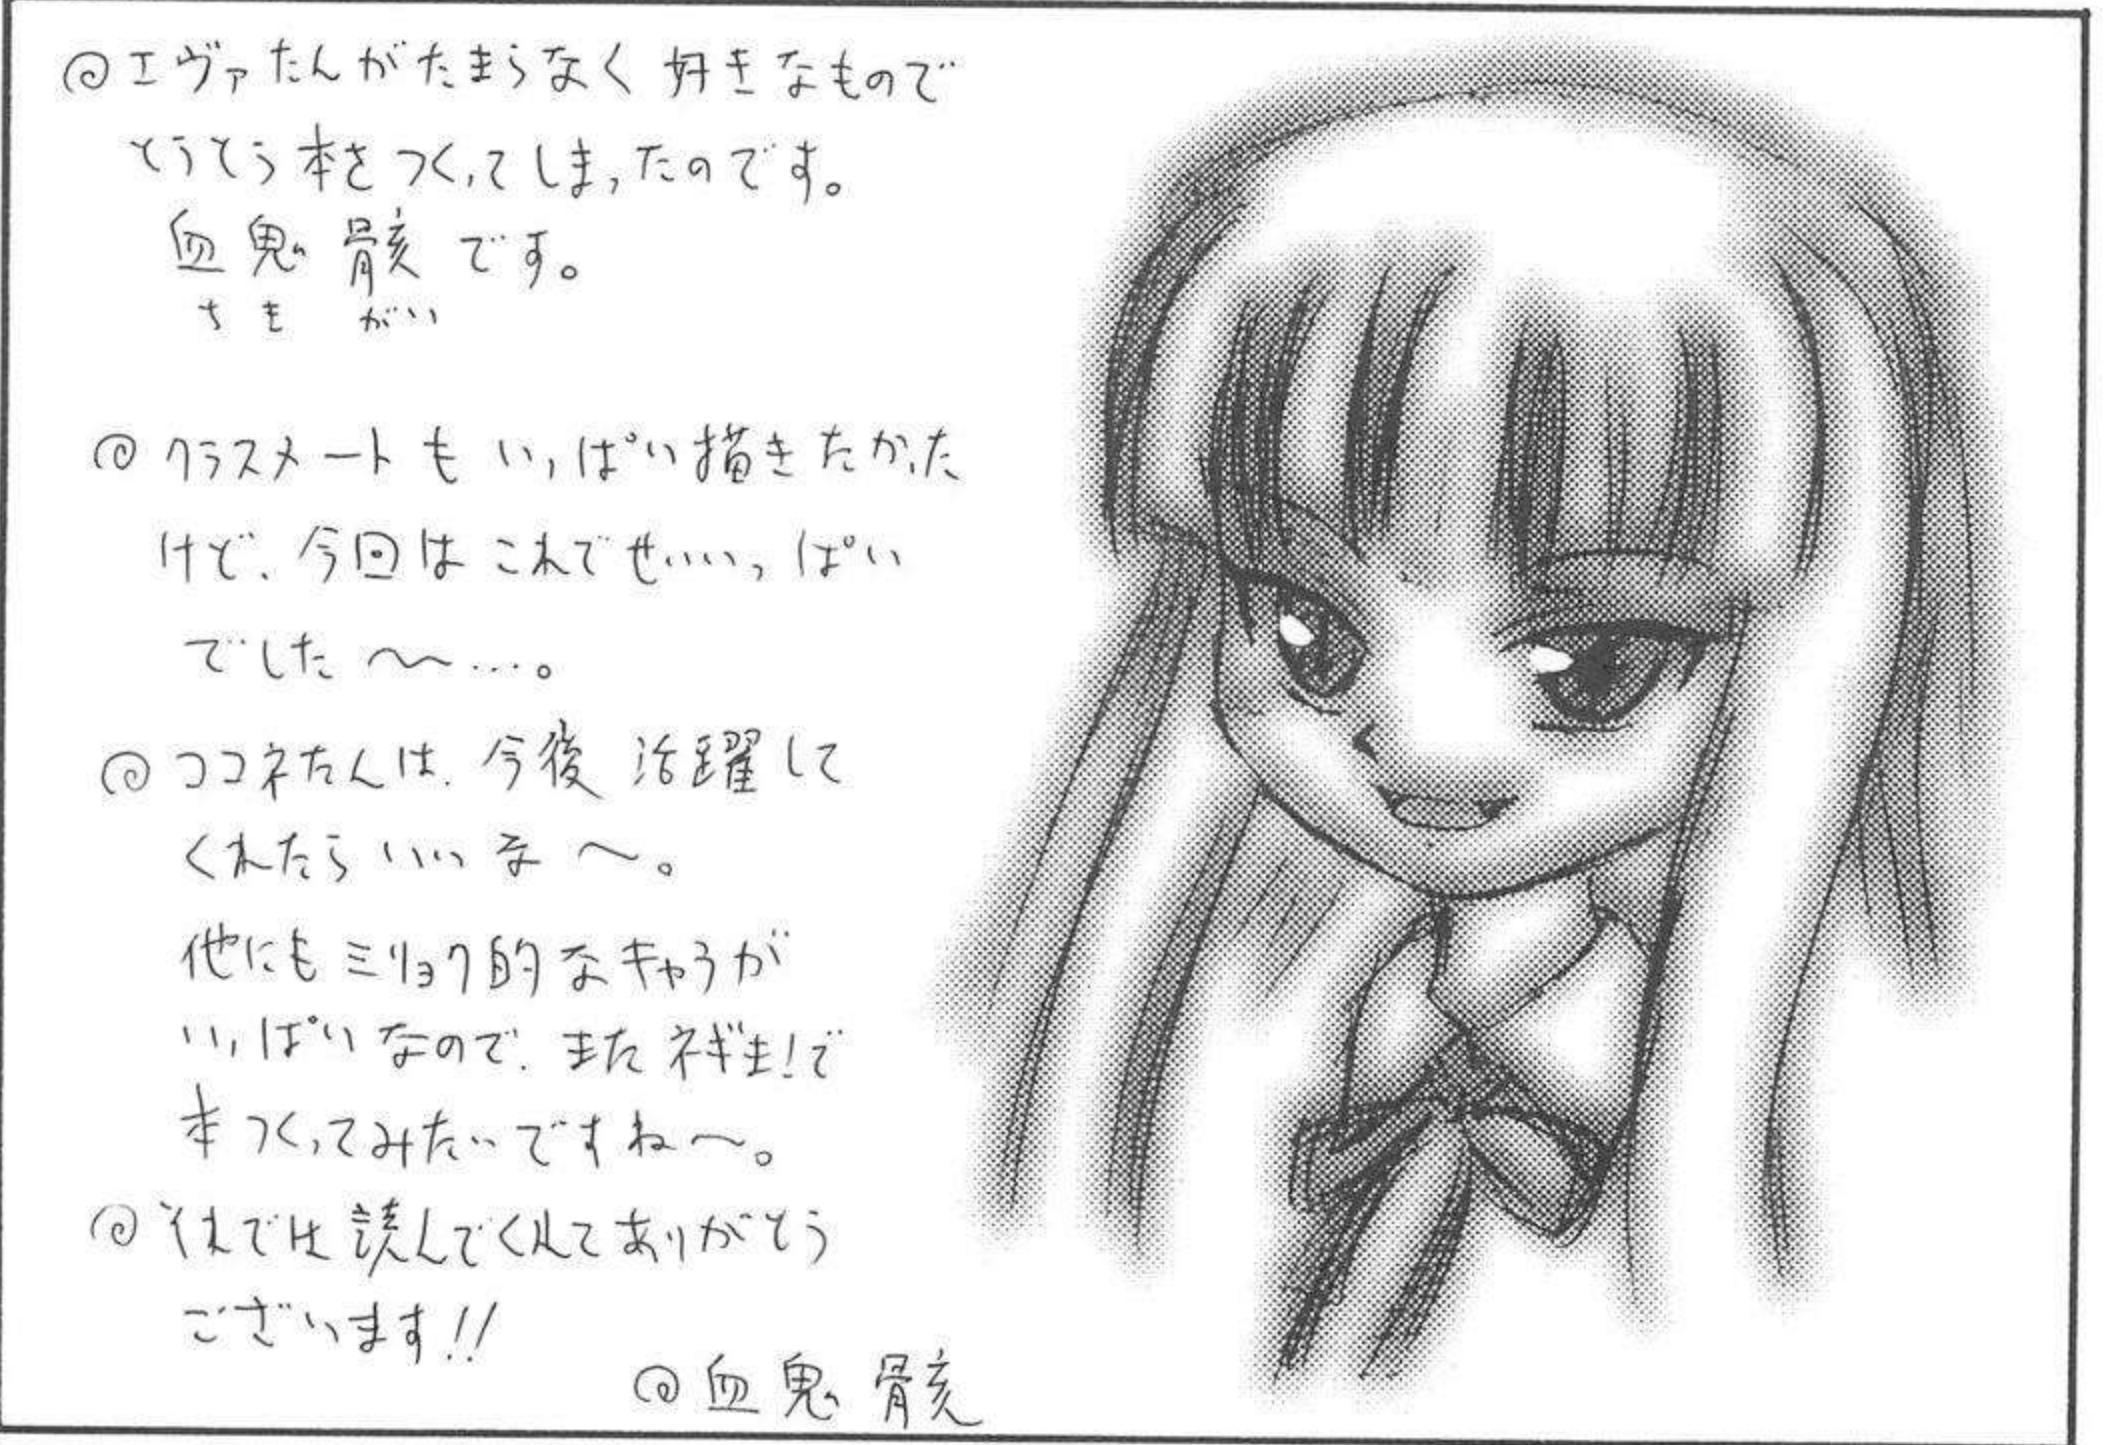 ◎エヴァたんがたまらなく好きなもので
とうとう本をつくってしまったのです。
血鬼骸です。
ちき がい
◎クラスメートもいっぱい描きたかった
けど、今回はこれでせいいっぱい
でした〜…。
◎ココネたんは、今後活躍して
くれたらいいな〜。
他にもミリョク的なキャラが
いっぱいなので、またネギま!で
本つくってみたいですね〜。
◎それでは読んでくれてありがとう
ございます!!
◎血鬼骸